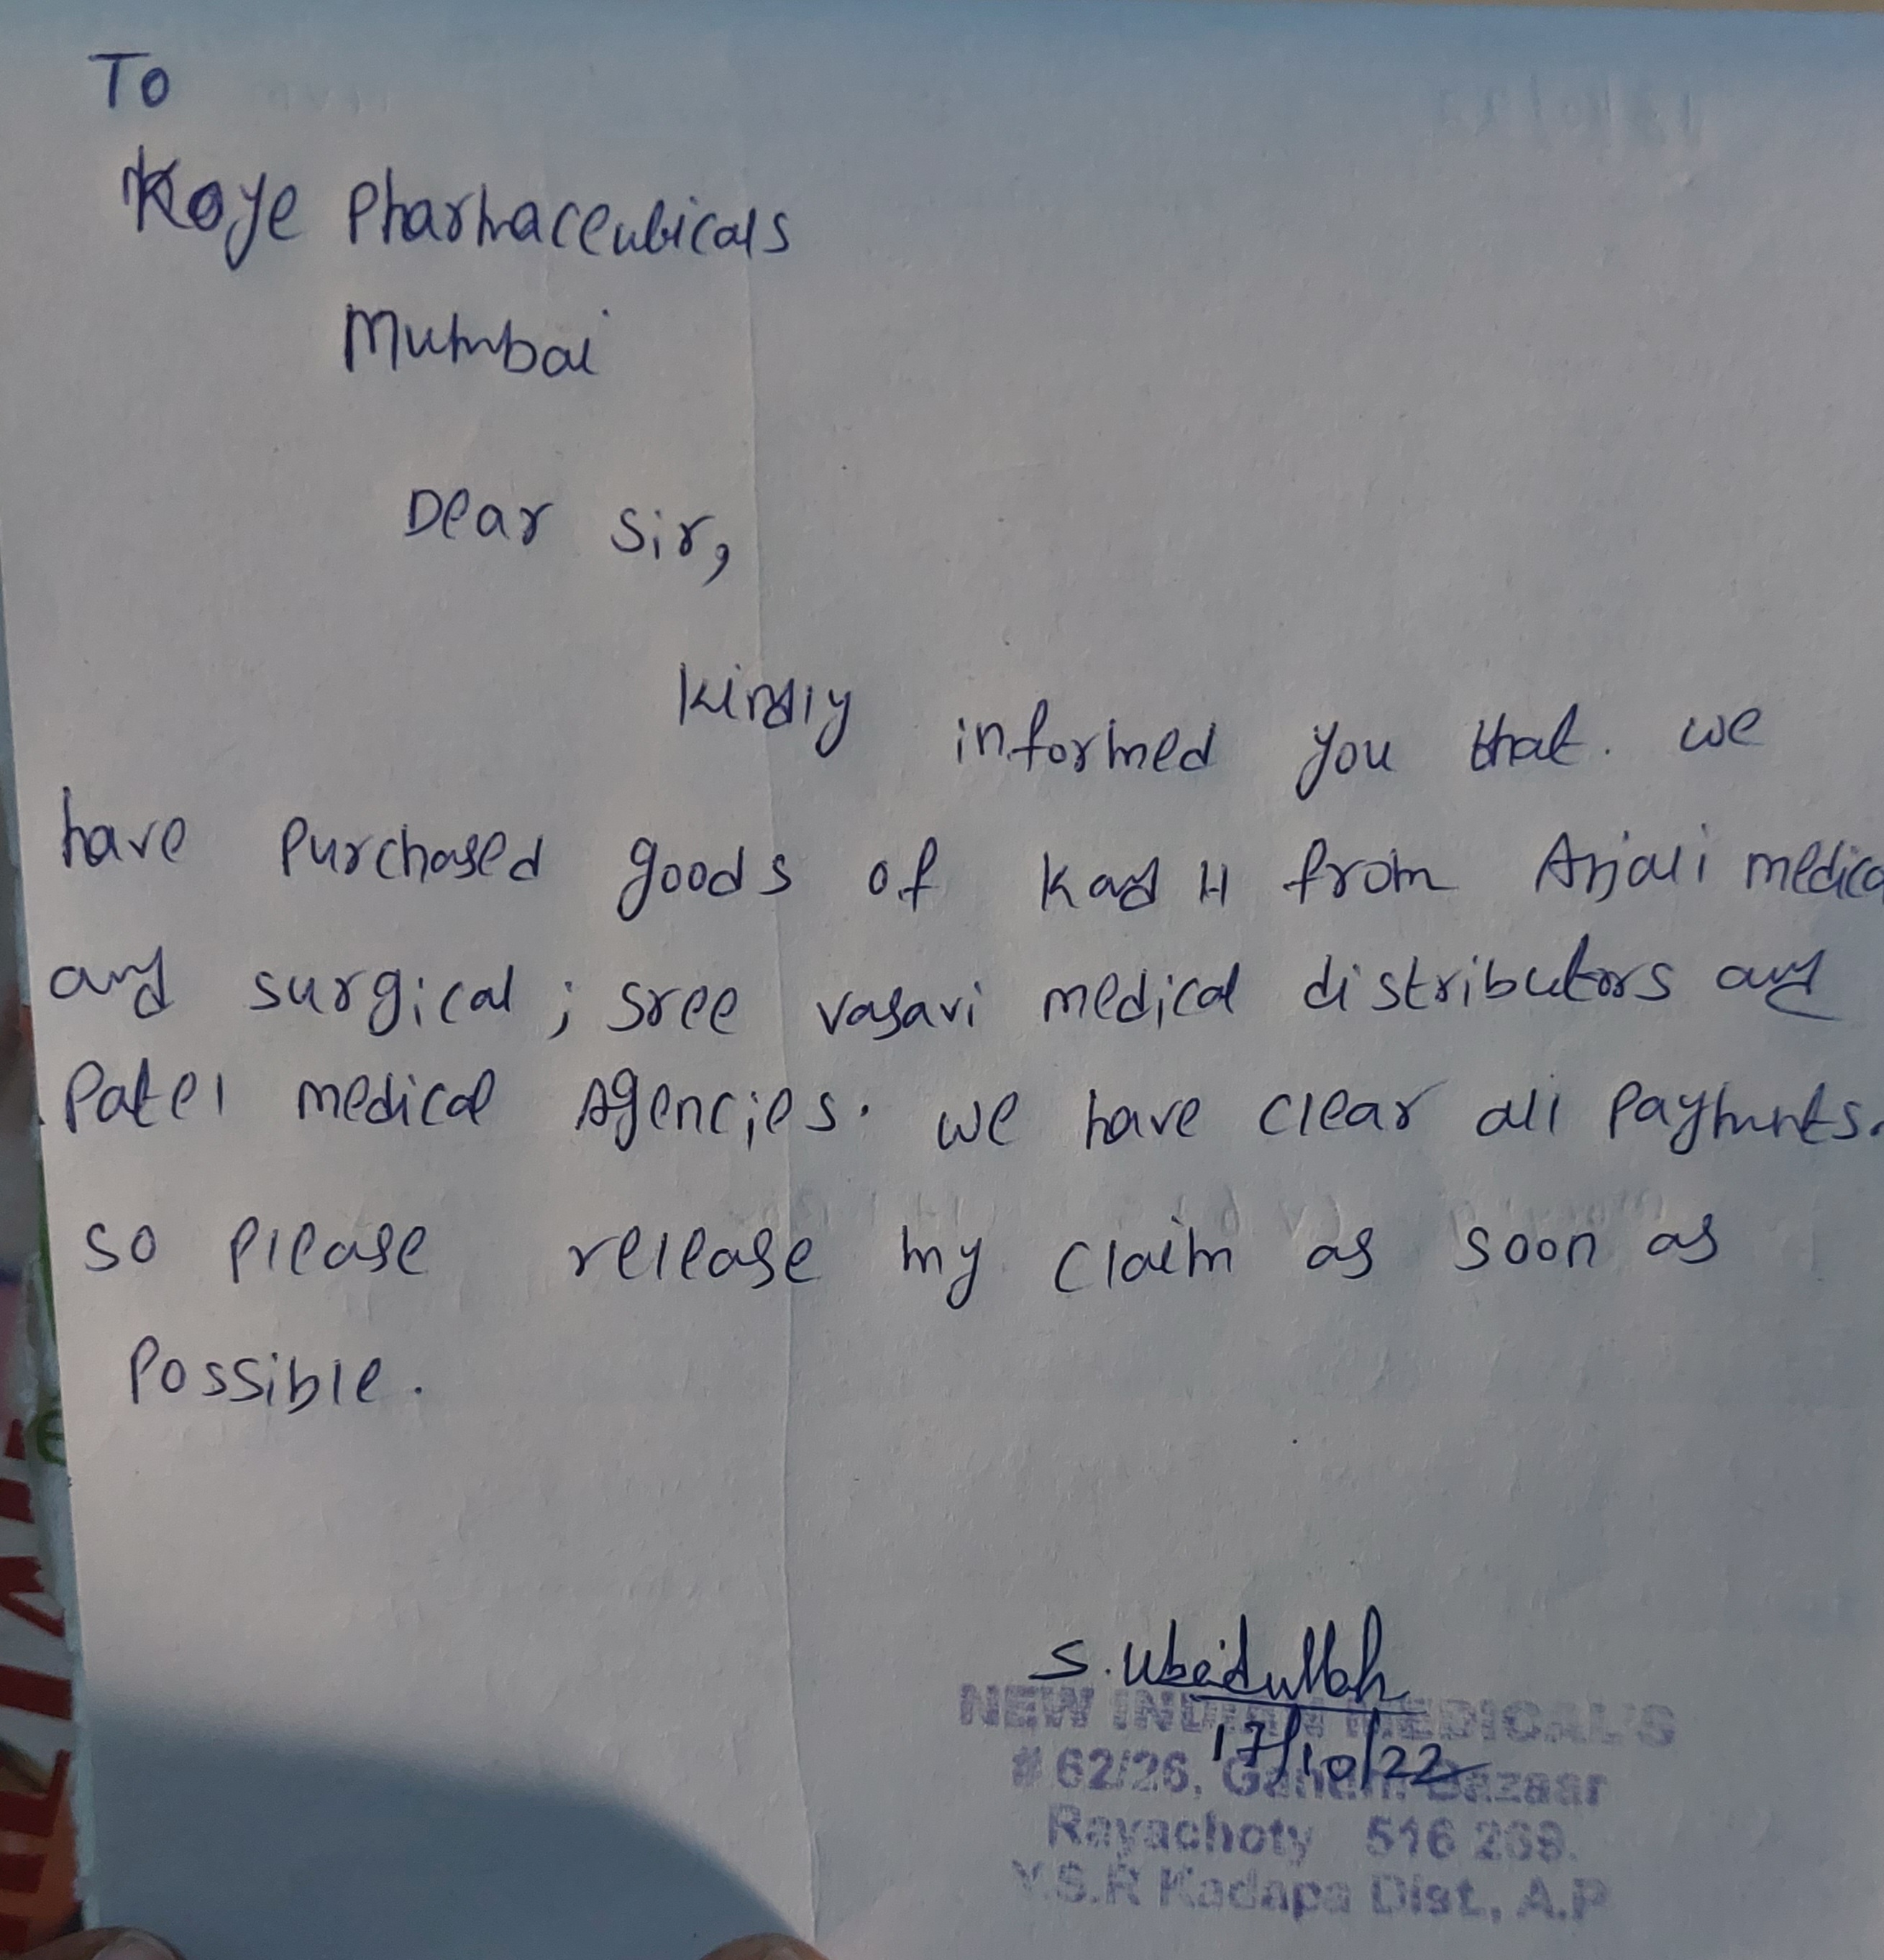 To
Koye Pharmaceuticals
Mumbai
Dear Sir,
Kindly informed you that. we
have purchased goods of Kad H from Anjali medica
and surgical ; Sree vasavi medical distributors and
Patel medical Agencies. we have clear all payments.
so please release my claim as soon as
Possible.
S. Ubaidullah
NEW INDIAN MEDICAL'S
17/10/22
# 62/26, Gandhi Bazaar
Rayachoty 516 269.
Y.S.R Kadapa Dist., A.P